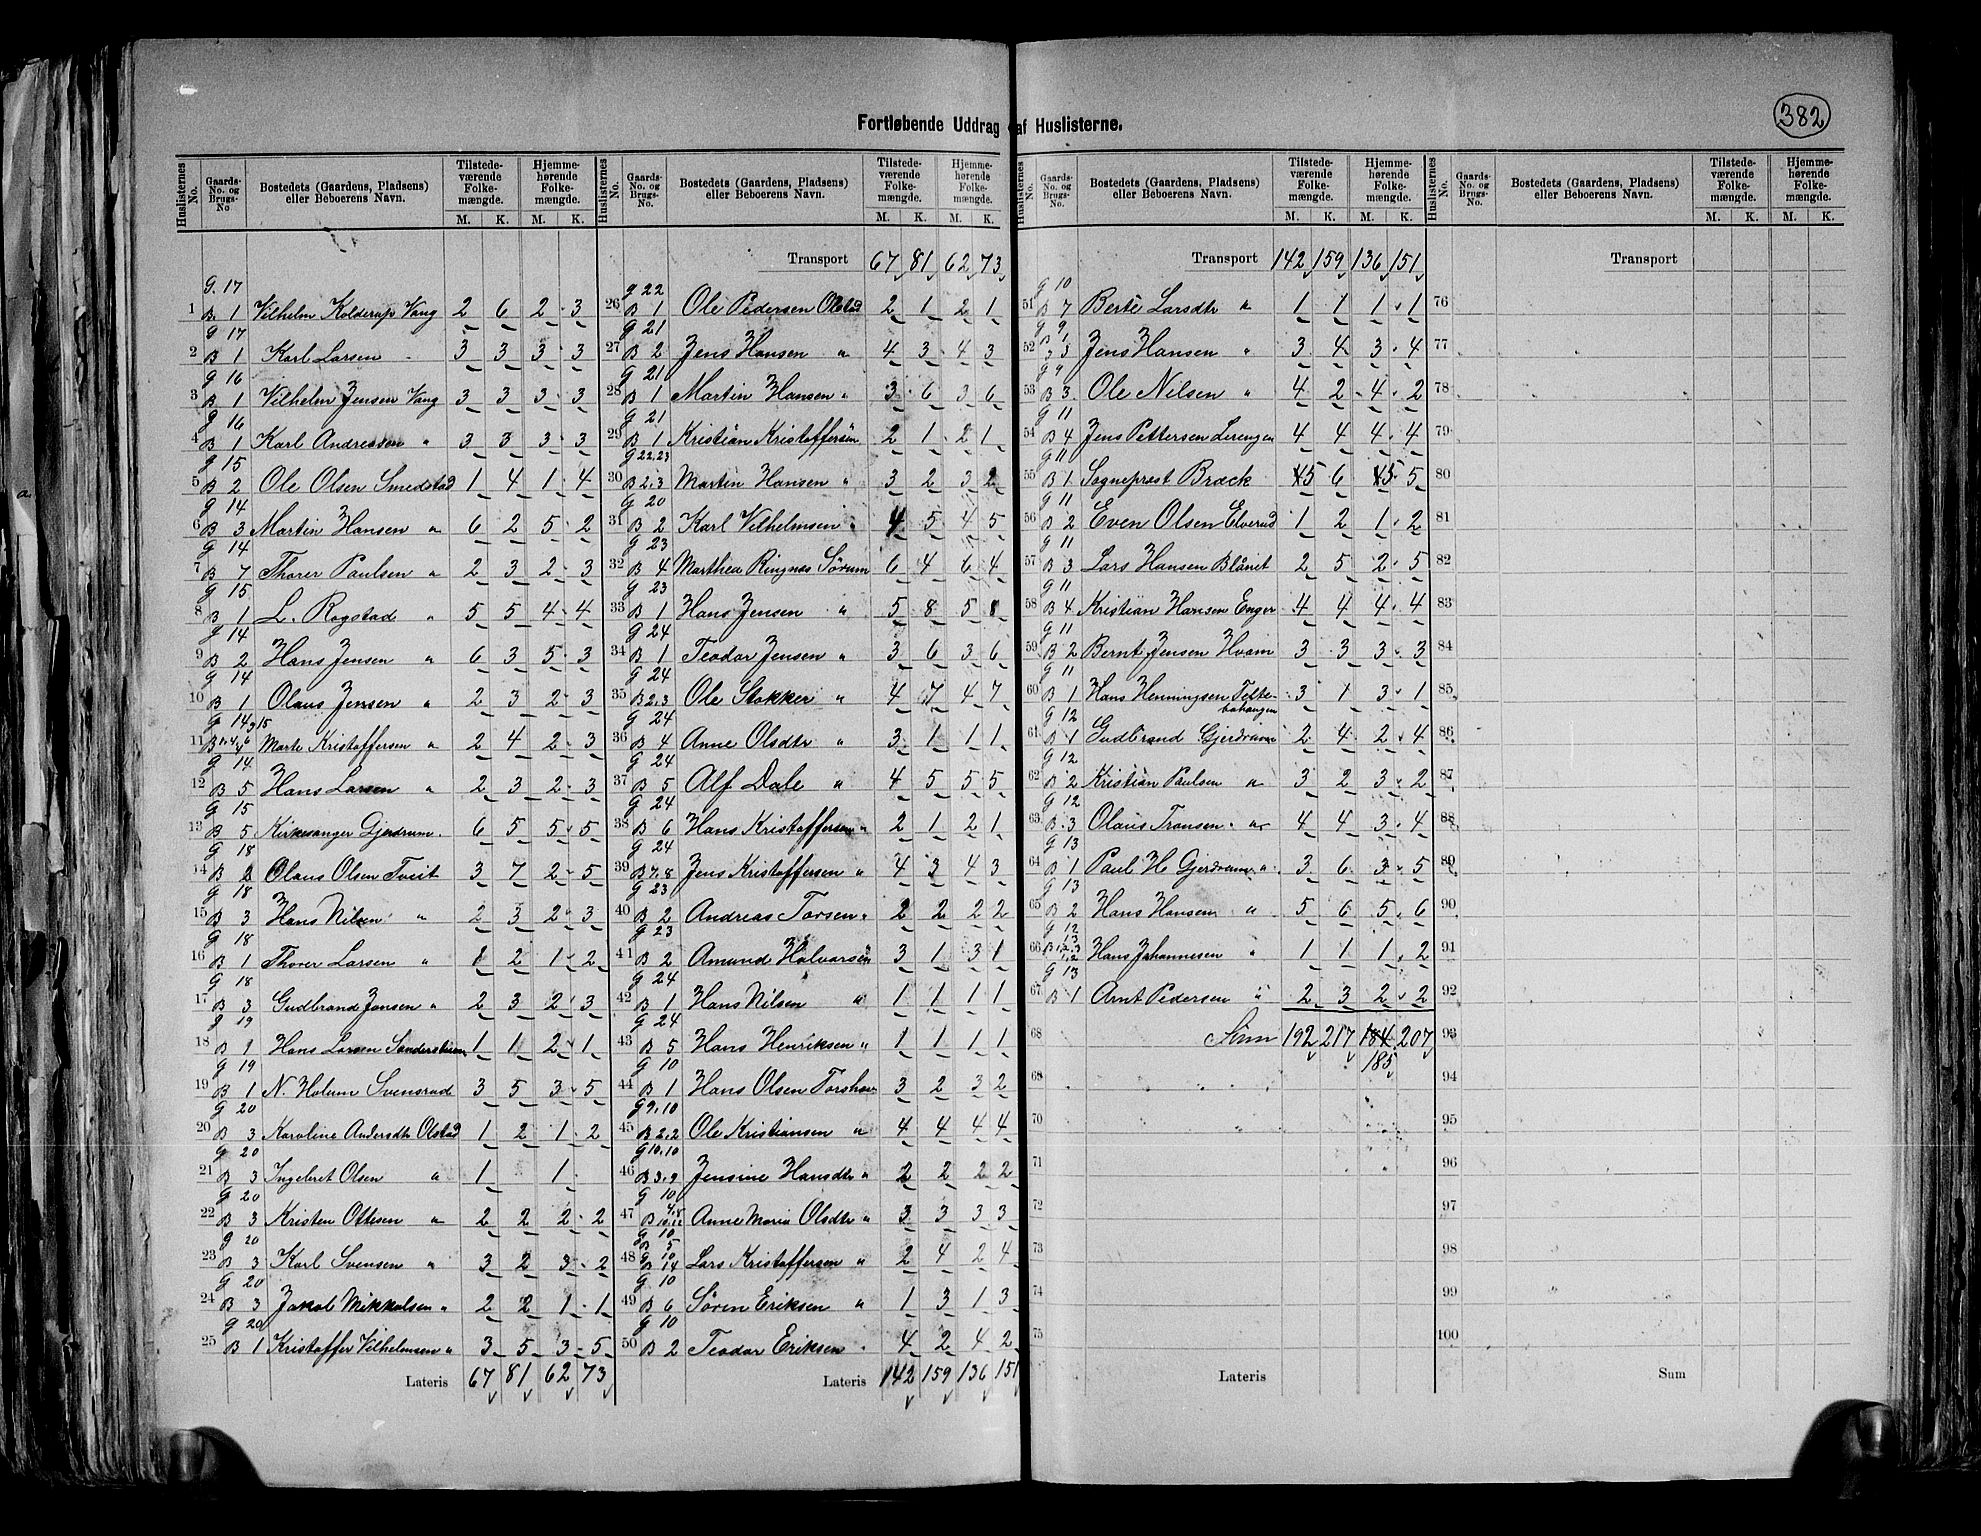 382
Fortløbende Uddrag af Huslisterne.
Huslisternes No. | Gaards-No. og Brugs-No | Bostedets (Gaardens, Pladsens) eller Beboerens Navn. | Tilstedeværende Folkemængde. M. K. | Hjemmehørende Folkemængde. M. K.
1 G. 17 B 1 Vilhelm Kolderup Vang 2 6 2 3
2 G 17 B 1 Karl Larsen 3 3 3 3
3 G 16 B 1 Vilhelm Jensen Vang 3 3 3 3
4 G 16 B 1 Karl Andreasen " 3 3 3 3
5 G 15 B 2 Ole Olsen Smedstad 1 4 1 4
6 G 14 B 3 Martin Hansen " 6 2 5 2
7 G 14 B 7 Thorer Paulsen " 2 3 2 3
8 G 15 B 1 L. Rogstad " 5 5 4 4
9 G 14 B 2 Hans Jensen " 6 3 5 3
10 G 14 B 1 Olaus Jensen " 2 3 2 3
11 G 14, 15 B 1, 4, 6 Marte Kristoffersen " 2 4 2 3
12 G 14 B 5 Hans Larsen " 2 3 2 3
13 G 15 B 5 Kirkesanger Gjerdrum. 6 5 5 5
14 G 18 B 2 Olaus Olsen Tveit 3 7 2 5
15 G 18 B 3 Hans Nilsen " 2 3 2 3
16 G 18 B 1 Thorer Larsen " 1 2 1 2
17 G 18 B 3 Gudbrand Jansen " 2 3 2 3
18 G 19 B 1 Hans Larsen 1 1 2 1
19 G 19 B 1 N. Holum Svensrud 3 5 3 5
20 G 20 B 3 Karoline Andersdtr Olstad 1 2 1 2
21 G 20 B 3 Ingebret Olsen " 1 1
22 G 20 B 3 Kristen Ottesen " 2 2 2 2
23 G 20 B 3 Karl Svensen " 3 2 3 2
24 G 20 B 3 Jakob Mikkelsen " 2 2 1 1
25 G 20 B 1 Kristoffer Vilhelmsen " 3 5 3 5
Lateris 67 81 62 73
Huslisternes No. | Gaards-No. og Brugs-No. | Bostedets (Gaardens, Pladsens) eller Beboerens Navn. | Tilstedeværende Folkemængde. M. K. | Hjemmehørende Folkemængde. M. K.
Transport 67 81 62 73
26 G 22 B 1 Ole Pedersen Olstad 2 1 2 1
27 G 21 B 2 Jens Hansen " 4 3 4 3
28 G 21 B 1 Martin Hansen " 3 6 3 6
29 G 21 B 1 Kristian Kristoffersen 2 1 2 1
30 G 22.23 B 2.3 Martin Hansen " 3 2 3 2
31 G 20 B 2 Karl Vilhelmsen " 4 5 4 5
32 G 23 B 4 Marthea Ringnes Sörum 6 4 6 4
33 G 23 B 1 Hans Jensen " 5 8 5 8
34 G 24 B 1 Teodor Jensen " 3 6 3 6
35 G 24 B 2.3 Ole Stokker " 4 7 4 7
36 G 24 B 4 Anne Olsdtr " 3 1 1 1
37 G 24 B 5 Alf Dale " 4 5 5 5
38 G 24 B 6 Hans Kristoffersen " 2 1 2 1
39 G 24 B 7.8 Jens Kristoffersen " 4 3 4 3
40 G 23 B 2 Andreas Torsen " 2 2 2 2
41 G 23 B 2 Amund Halvorsen 3 1 3 1
42 G 24 B 1 Hans Nilsen " 1 1 1 1
43 G 24 B 5 Hans Henriksen " 1 1 1 1
44 G 10 B 1 Hans Olsen 3 2 3 2
45 G 9.10 B 2.2 Ole Kristiansen " 4 4 4 4
46 G 10.10 B 3.9 Jensine Hansdtr " 2 2 2 2
47 G 10 B 4.8 Anne Maria Olsdtr " 3 3 3 3
48 G 10 B 5 G 10 B 14 Lars Kristoffersen " 2 4 2 4
49 G 10 B 6 Sören Eriksen " 1 3 1 3
50 G 10 B 2 Teodor Eriksen 4 2 4 2
Lateris 142 159 136 151
Huslisternes No. | Gaards-No. og Brugs-No. | Bostedets (Gaardens, Pladsens) eller Beboerens Navn. | Tilstedeværende Folkemængde. M. K. | Hjemmehørende Folkemængde. M. K.
Transport 142 159 136 151
51 G 10 B 7 Berte Larsdtr " 1 1 1 1
52 G 9 B 1 3 Jens Hansen " 3 4 3 4
53 G 9 B 3 Ole Nilsen " 4 2 4 2
54 G 11 B 4 Jens Pettersen Lerengen 4 4 4 4
55 G 11 B 1 Sogneprest Bræck 5 6 5 5
56 G 11 B 2 Even Olsen Elverud 1 2 1 2
57 G 11 B 3 Lars Hansen 2 5 2 5
58 G 11 B 4 Kristian Hansen Enger 4 4 4 4
59 G 11 B 2 Bernt Jensen Hvam 3 3 3 3
60 G 11 B 1 Hans Henningsen 3 1 3 1
61 G 12 B 1 Gudbrand Gjerdrum 2 4 2 4
62 G 12 B 2 Kristian Paulsen " 3 2 3 2
63 G 12 B 3 Olaus Transen " 4 4 3 4
64 G 13 B 1 Paul H. Gjerdrum " 3 6 3 5
65 G 13 B 2 Hans Hansen " 5 6 5 6
66 G 12 13 B 1,2,3 1,2 Hans Johannesen " 1 1 1 2
67 G 13 B 1 Arnt Pedersen " 2 3 2 2
68 Sum 192 217 184 207
185
69
70
71
72
73
74
75
Lateris
Huslisternes No. | Gaards-No. og Brugs-No. | Bostedets (Gaardens, Pladsens) eller Beboerens Navn. | Tilstedeværende Folkemængde. M. K. | Hjemmehørende Folkemængde. M. K.
Transport
76
77
78
79
80
81
82
83
84
85
86
87
88
89
90
91
92
93
94
95
96
97
98
99
100
Sum